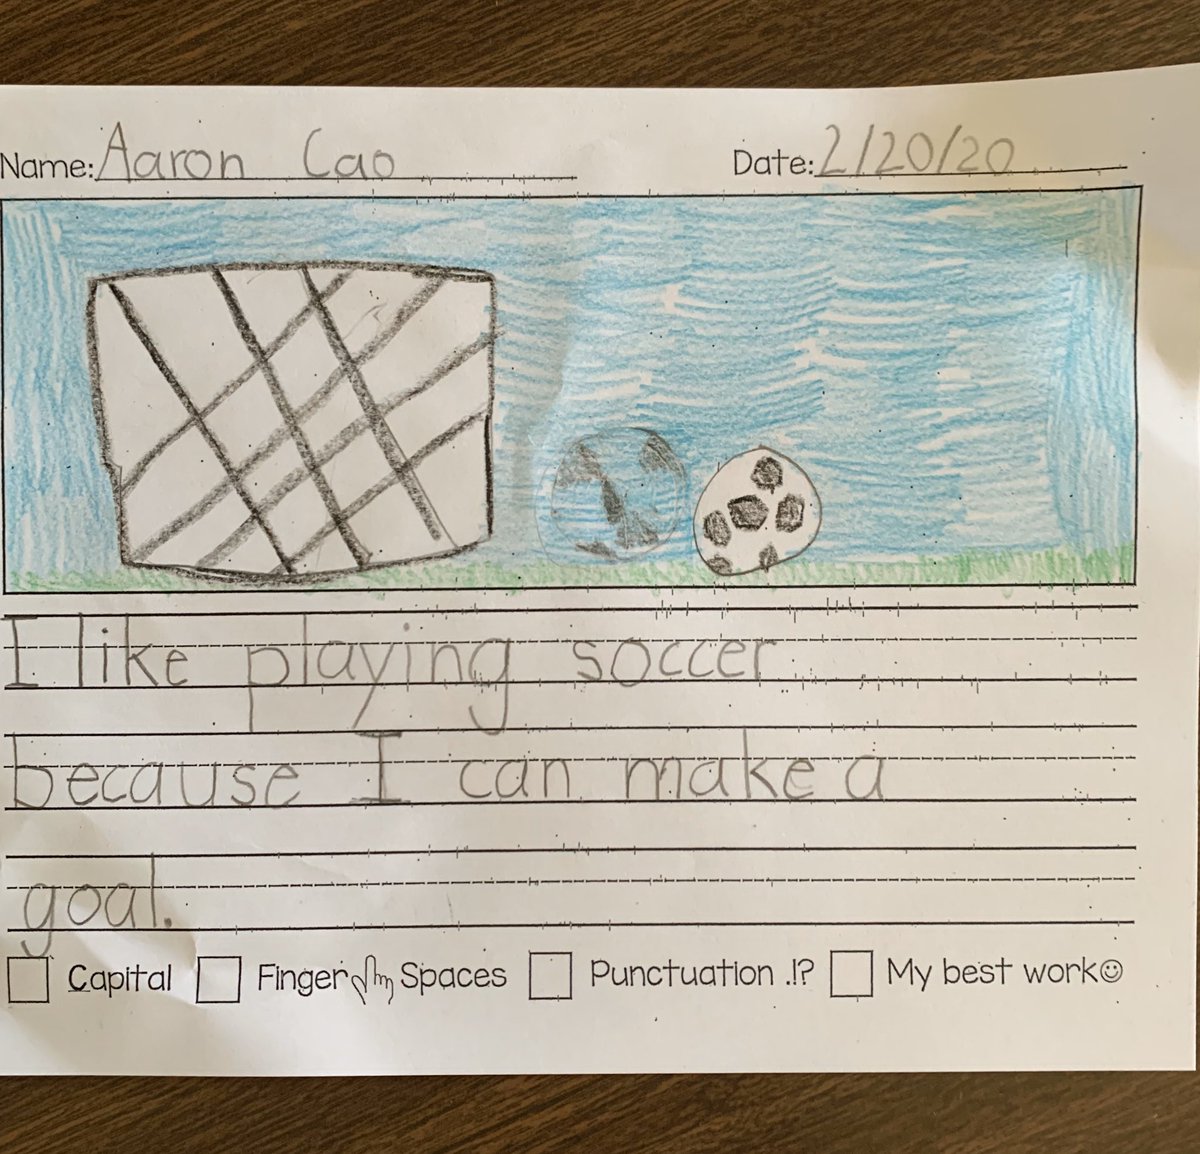 Name: Aaron Cao Date: 2/20/20
I like playing soccer
because I can make a
goal.
Capital Finger Spaces Punctuation .!? My best work☺